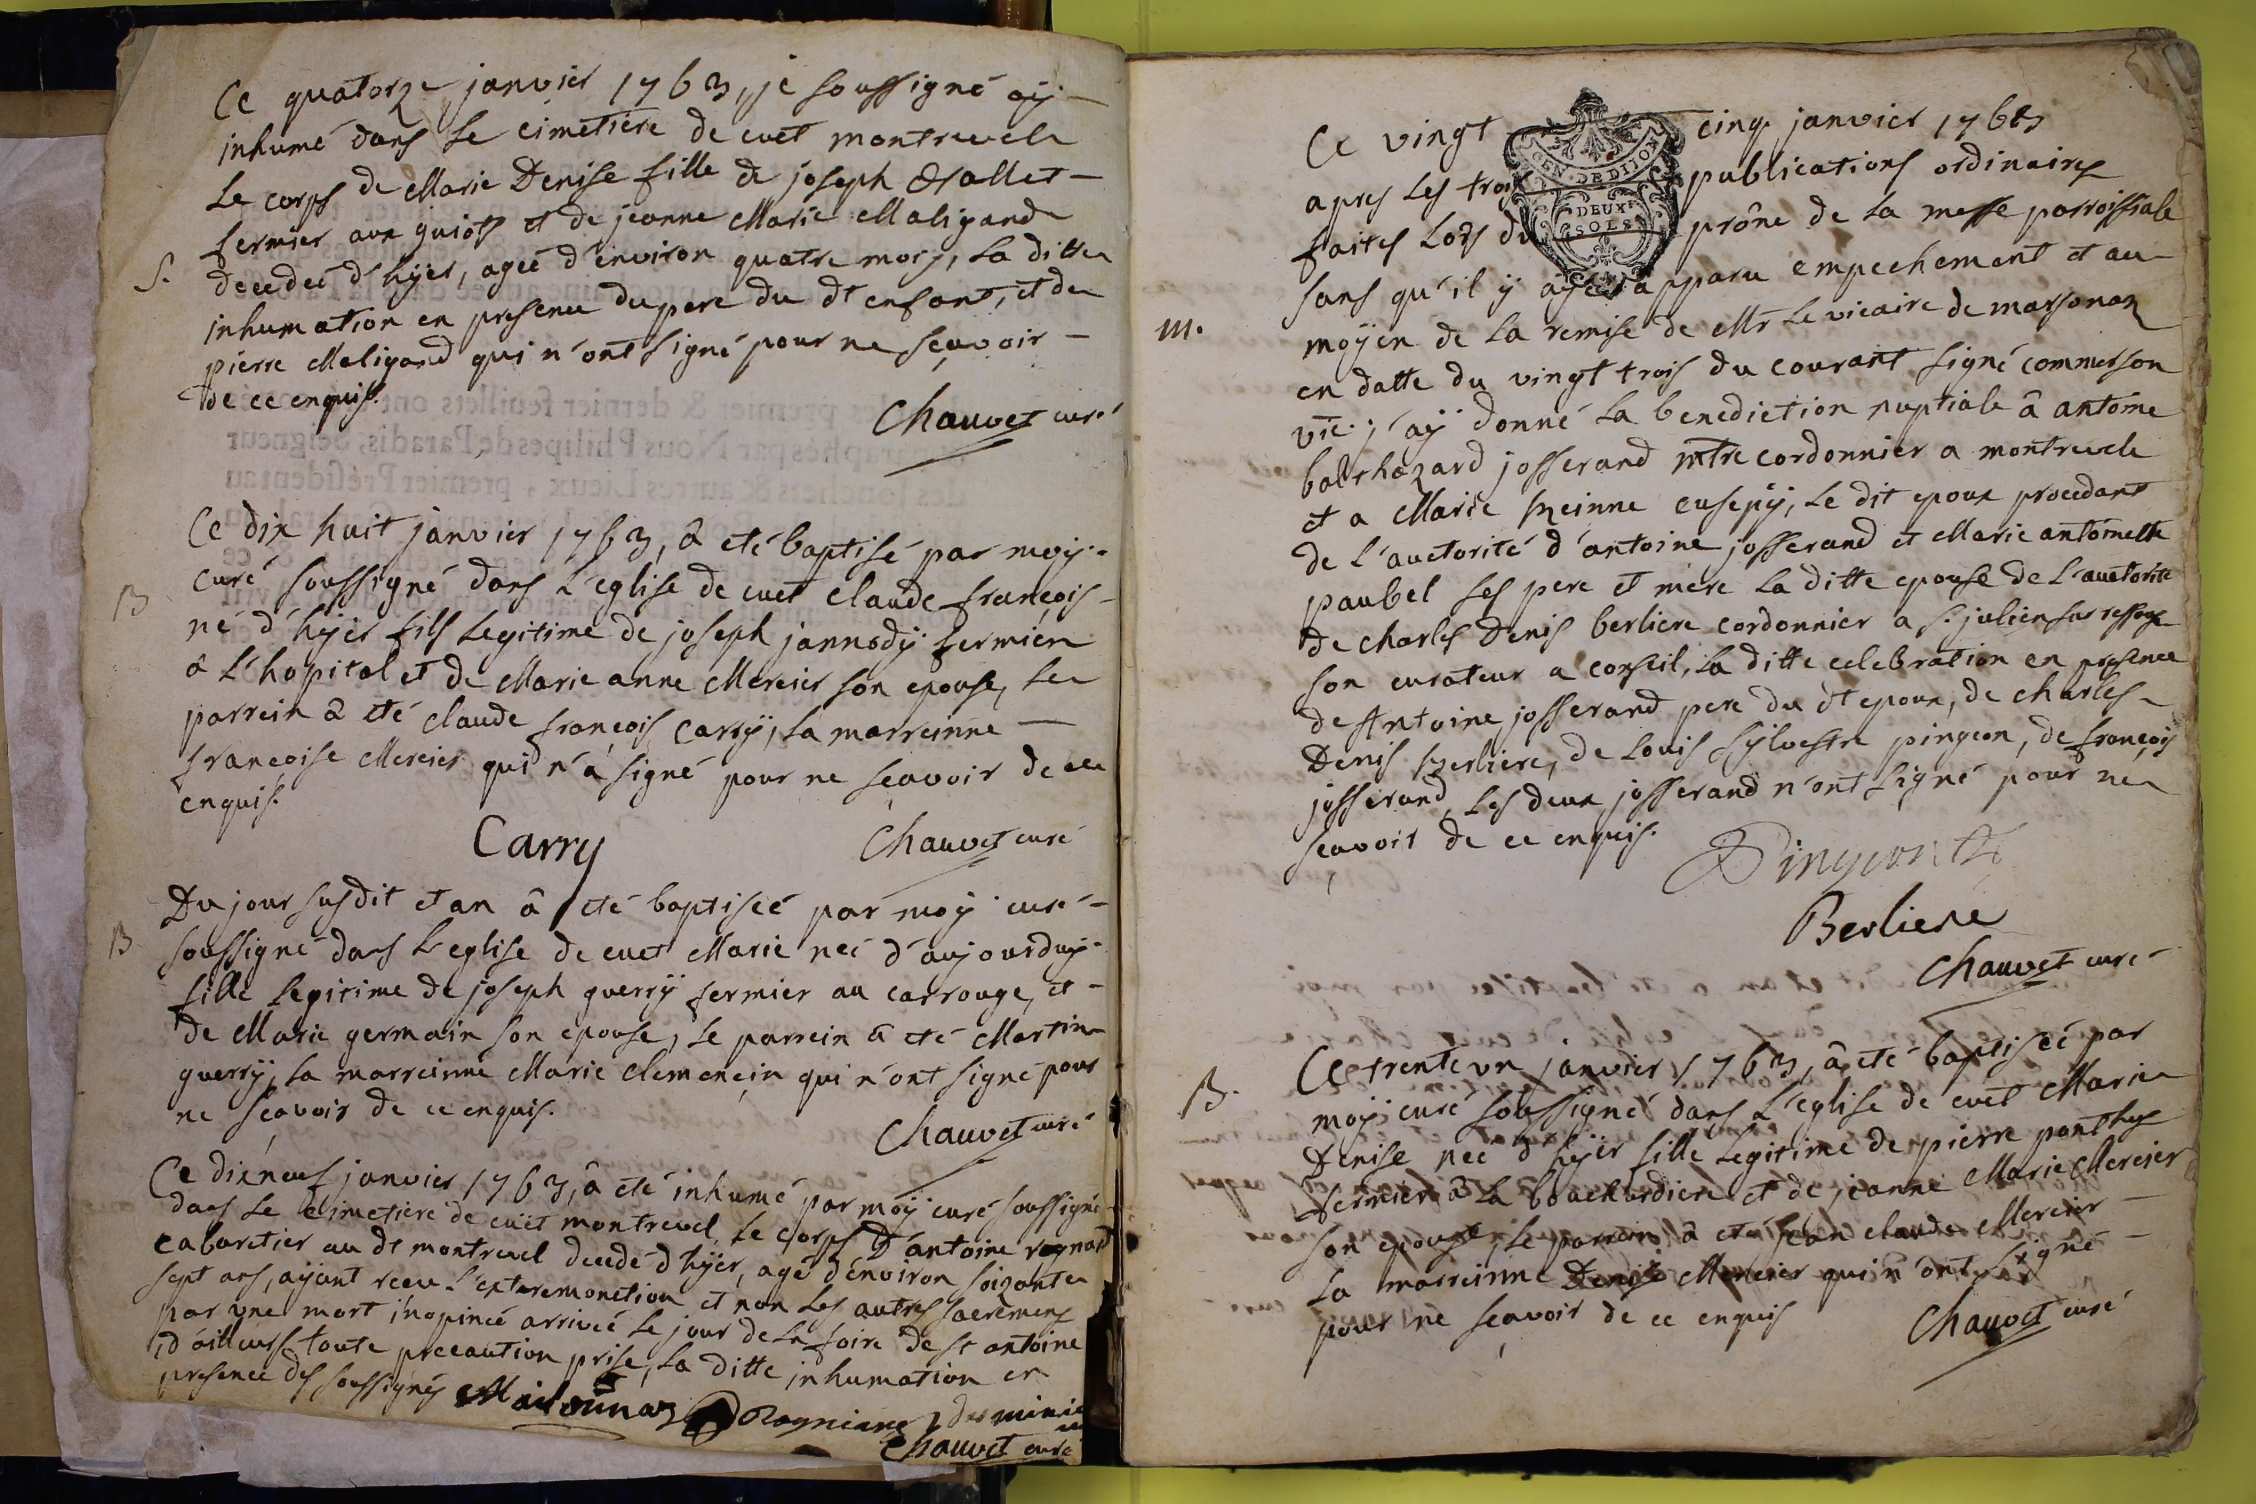 Ce quatorze janvier 1763, je soussigné aÿ
inhumé dans le cimetière de cuet montrevel
le corps de Marie Denise fille de joseph
fermier aux guiots et de jeanne Marie Maligand
S. decedeé d'hÿer, ageé d'environ quatre mois, la ditte
inhumation en presence du pere du dt enfant, et de
pierre Maligand qui n'ont signé pour ne sçavoir
de ce enquis.
Chauvet curé
Ce dix huit janvier 1763, â eté baptisé par moÿ
B curé soussigné dans l'eglise de cuet claude françois
né d'hÿer fils legitime de joseph jannodÿ fermier
â l'hopital et de Marie anne Mercier son epouse, le
parrein â eté claude françois carrÿ, la marreinne
françoise Mercier qui n'a signé pour ne sçavoir de ce
enquis.
Carry
Chauvet curé
Du jour susdit et an â eté baptiseé par moÿ curé
B soussigné dans l'eglise de cuet Marie neé d'aujourduÿ
fille legitime de joseph guerrÿ fermier au carrouge, et
de Marie germain son epouse, le parrein â eté Martin
guerrÿ, la marreinne Marie clemencin qui n'ont signé pour
ne sçavoir de ce enquis.
Chauvet curé
Ce dixneuf janvier 1763, â eté inhumé par moÿ curé soussigné
dans le cimetiere de cuët montrevel, le corps d'antoine
cabaretier au dt montrevel decedé d'hÿer, agé d'environ soizante
sept ans, aÿant receu l'extremonction et non les autres sacremens
par une mort inopineé arriveé le jour de la foire de st antoine
d'ailleurs toute precaution prise, la ditte inhumation en
presence des soussignés
Chauvet curé
Ce vingt cinq janvier 1763
GEN. DE DIJON
apres les trois publications ordinaires
DEUX
SOLS
faites lors du prône de la messe parroissiale
sans qu'il ÿ aÿe apparu empechement et au
m. moÿen de la remise de Mr le vicaire de marsonaz
en datte du vingt trois du courant signé commerson
vic.; aÿ donné la benediction nuptiale â antoine
balthazard josserand mtre cordonnier a montrevel
et a Marie cusepÿ, le dit epoux procedant
de l'auctorité d'antoine josserand et Marie antoinette
paubel ses pere et mere la ditte epouse de l'auctorité
de charles Denis berliere cordonnier a st julien sur ressouze
son curateur a conseil, la ditte celebration en presence
de Antoine josserand pere du dt epoux, de charles
Denis berliere, de Louis sylvestre pingeon, de françois
josserand, les deux josserand n'ont signé pour ne
sçavoir de ce enquis.
Berliere
Chauvet curé
Ce trente un janvier 1763, â eté baptiseé par
B. moÿ curé soussigné dans l'eglise de cuet Marie
Denise neé d'hÿer fille legitime de pierre ponthus
fermier â la bouchardiere et de jeanne Marie Mercier
son epouse, le parrein â eté jean claude Mercier
la marreinne Denise Mercier qui n'ont signé
pour ne sçavoir de ce enquis
Chauvet curé